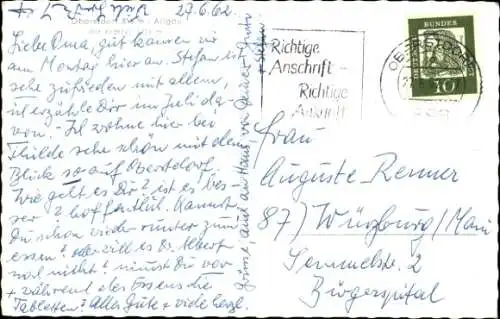 27.6.62
Oberstdorf 843 m - Allgäu
Liebe Oma, gut kamen wir
am Montag hier an. Stefan ist
sehr zufrieden mit allem,
ich erzähle Dir im Juli da,
von. Ich wohne hier bei
Thilde sehr schön mit dem
Blick so auf Oberstdorf.
Wie geht es Dir? ist es bes-
ser? hoffentlich. Kannst
Du schon wieder runter zum
essen? oder will es Dr. Albert
noch nicht? nimmst Du vor
+ während des Essens die
Tabletten? Alles Gute + viele herzl.
Grüsse, auch an Hans, von Deiner
+ Stefan.
Richtige
Anschrift -
Richtige
Anschrift
DEUTSCHE BUNDESPOST
10
OBERSTDORF
Frau
Auguste Renner
87) Würzburg/Main
Semmelstr. 2
Bürgerspital